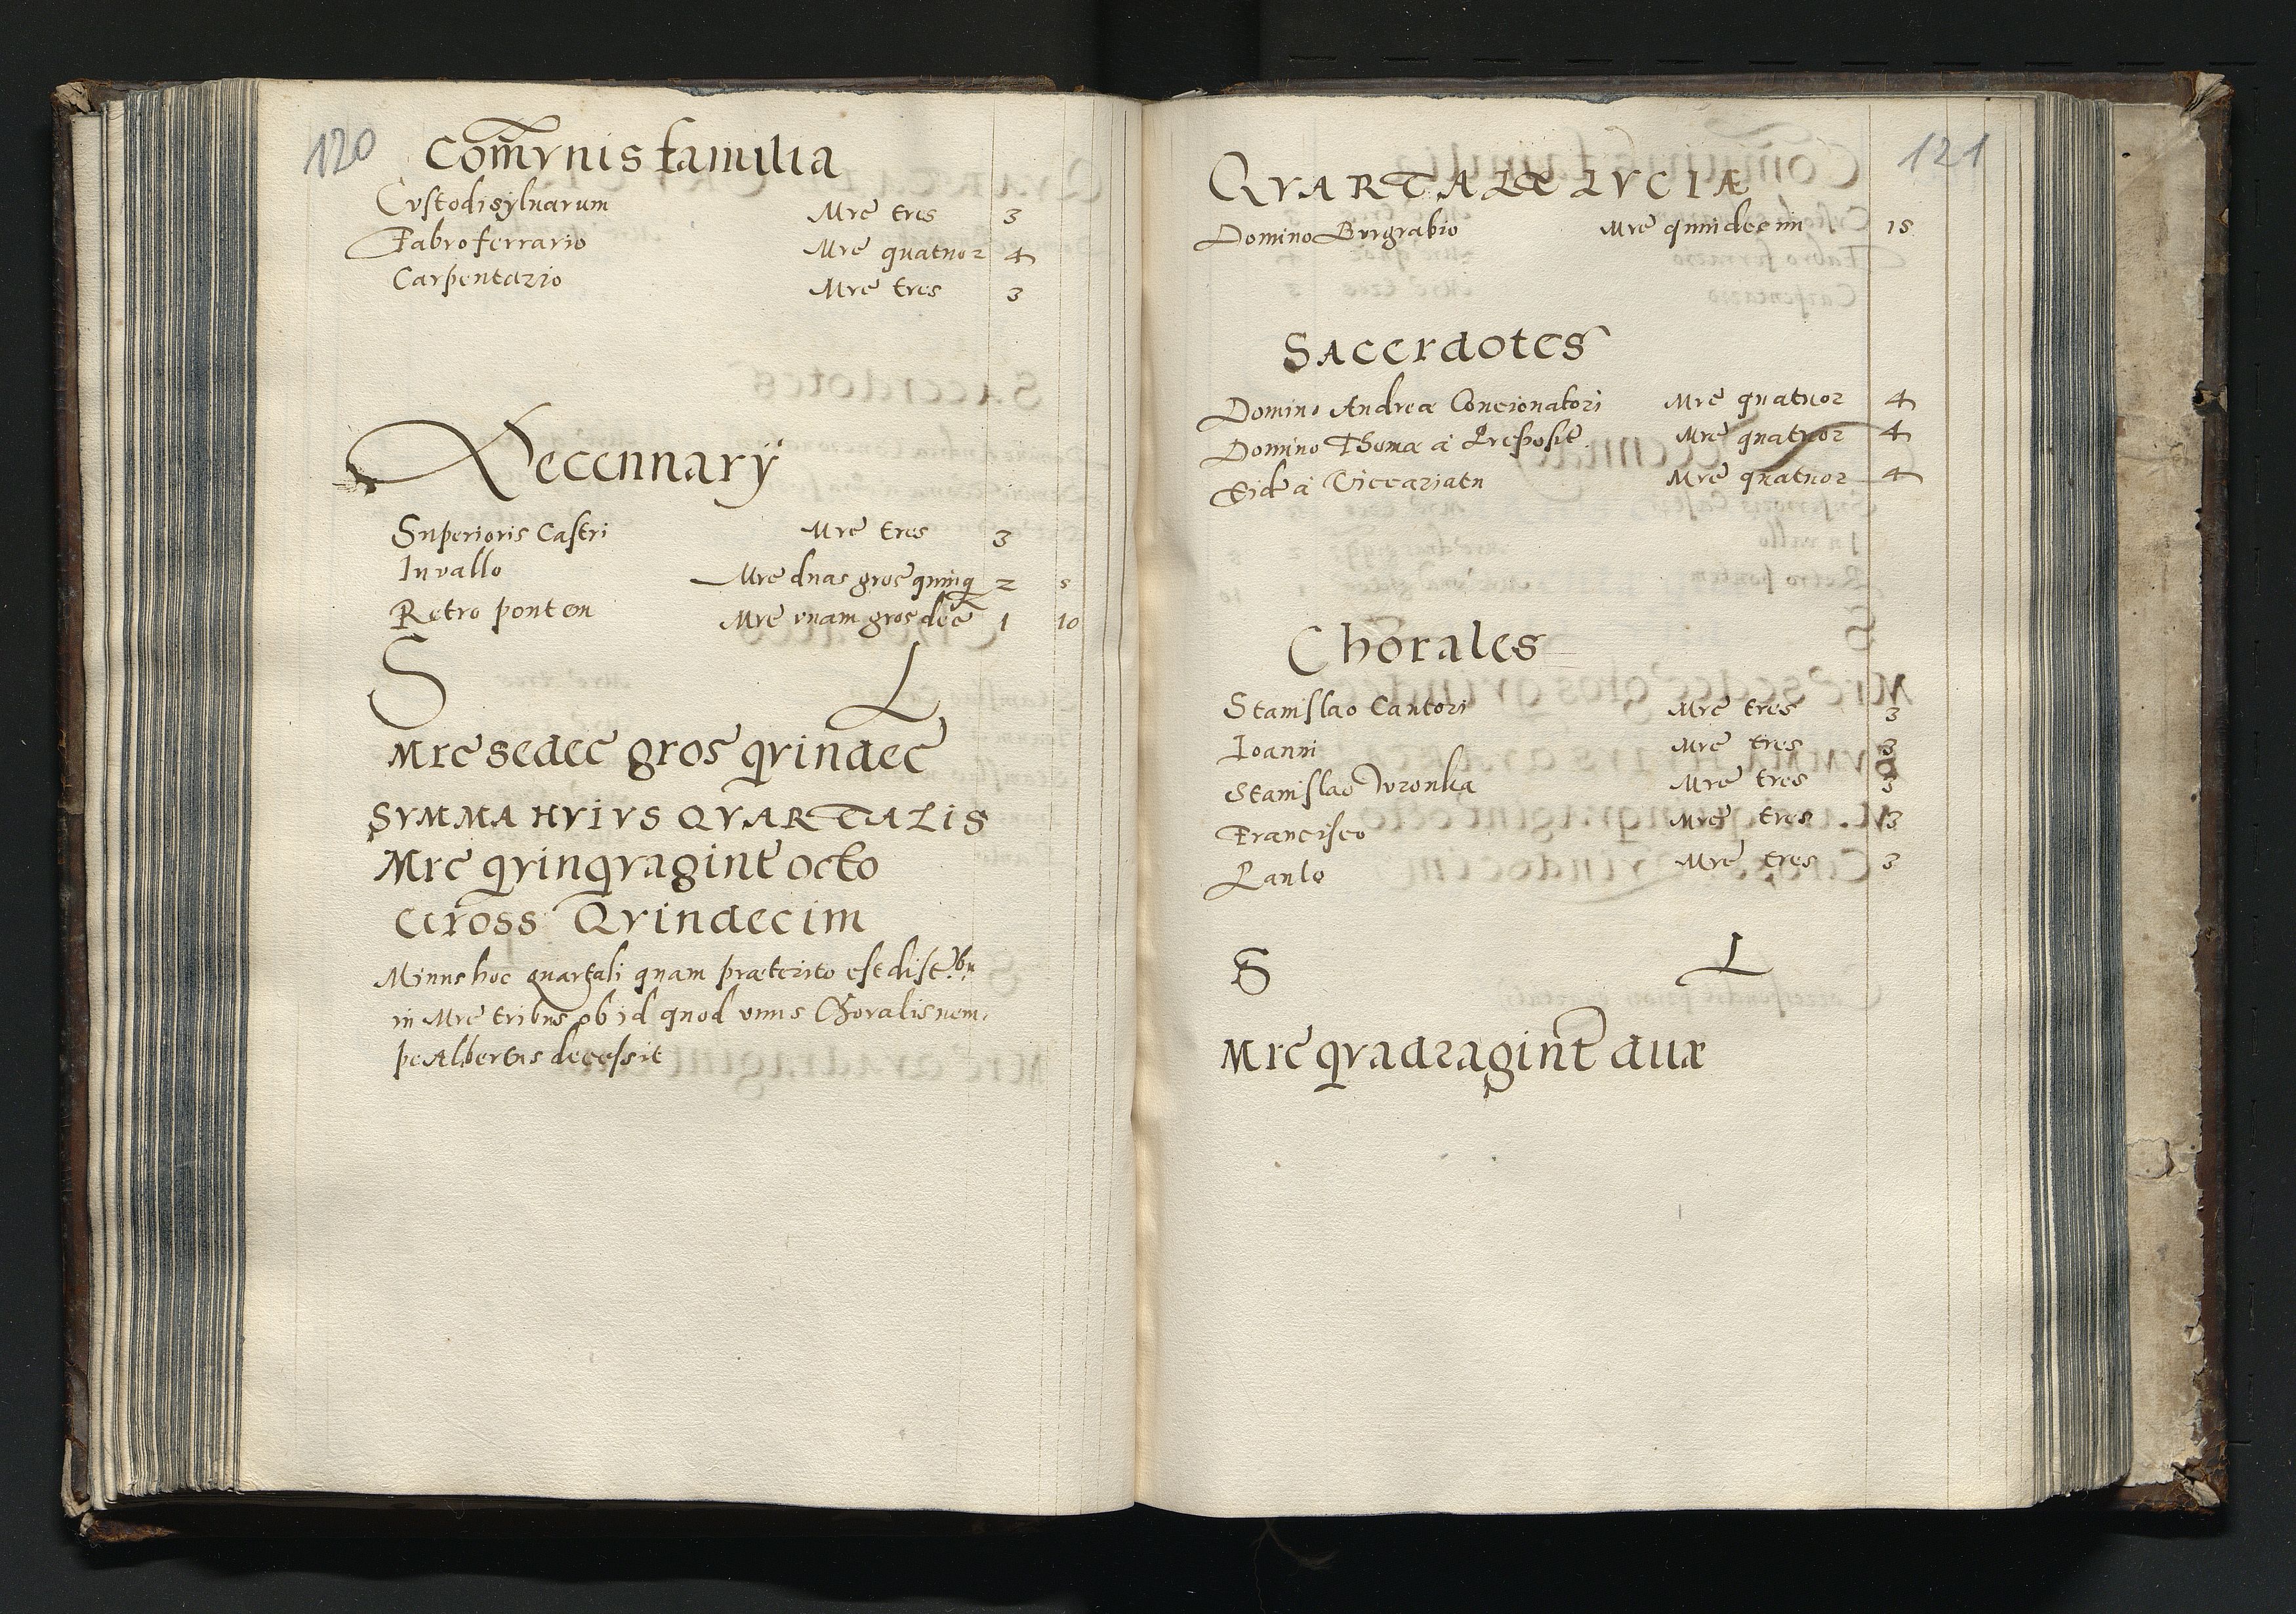 120
Com̄vnis familia
Cvstodi sylvarum Mrc̄ tres 3
Fabro ferrario Mrc̄ quatuor 4
Carpentario Mrc̄ tres 3
Decennarÿ
Superioris Castri Mrc̄ tres 3
In vallo Mrc̄ duas gros̄ quinq 2 5
Retro pontem Mrc̄ vnam gros̄ dec̄ 1 10
S L
Mrc̄ sedec̄ gros̄ qvindec̄
SVMMA HVIVS QVARTALIS
Mrc̄ qvinqvagint̄ octo
Gross Qvindecim
Minus hoc quartali quam præterito est distribu
in Mrc̄ tribus ob id quod vnus Choralis nem,
pe Albertus decessit
121
QVARTALE LVCIÆ
Domino Burgrabio Mrc̄ quindecim 15
Sacerdotes
Domino Andreæ Concionatori Mrc̄ quatuor 4
Domino Thomæ à Preposit̄ Mrc̄ quatuor 4
Eid̄ à Viccariatu Mrc̄ quatuor 4
Chorales
Stanislao Cantori Mrc̄ tres 3
Ioanni Mrc̄ tres 3
Stanislao Wronka Mrc̄ tres 3
Francisco Mrc̄ tres 3
Paulo Mrc̄ tres 3
S L
Mrc̄ qvadragint̄ duæ